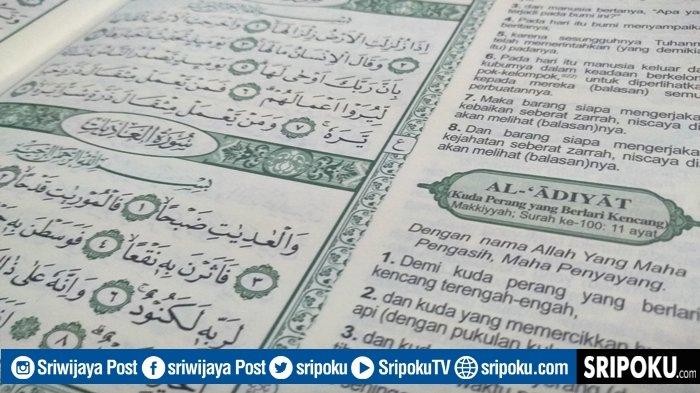 اِذَا زُلْزِلَتِ الْاَرْضُ زِلْزَالَهَا
وَقَالَ الْاِنْسَانُ مَا لَهَا ٣
بِاَنَّ رَبَّكَ اَوْحٰى لَهَا ٥
لِّيُرَوْا اَعْمَالَهُمْ ٦ فَمَنْ يَّعْمَلْ مِثْقَالَ
يَّرَهٗ ٧ وَمَنْ يَّعْمَلْ مِثْقَالَ
سُوْرَةُ الْعَادِيَات
وَالْعٰدِيٰتِ ضَبْحًا ١ فَالْمُوْرِيٰتِ قَدْحًا
٣ فَاَثَرْنَ بِهٖ نَقْعًا ٤ فَوَسَطْنَ بِهٖ
لِرَبِّهٖ لَكَنُوْدٌ ٦ وَاِنَّهٗ عَلٰى
٨
ع
3. dan manusia bertanya, "Apa
terjadi pada bumi ini?"
4. Pada hari itu bumi menyampaikan
beritanya,
5. karena sesungguhnya Tuhan
telah memerintahkan (yang demikian
itu) padanya.
6. Pada hari itu manusia keluar
kuburnya dalam keadaan berkelom
pok-kelompok, untuk diperlihatkan
kepada mereka (balasan)
perbuatannya.
7. Maka barang siapa mengerjakan
kebaikan seberat zarrah, niscaya
akan melihat (balasan)nya.
8. Dan barang siapa mengerjakan
kejahatan seberat zarrah, niscaya
akan melihat (balasan)nya.
AL-'ĀDIYĀT
(Kuda Perang yang Berlari Kencang)
Makkiyyah; Surah ke-100: 11 ayat
Dengan nama Allah Yang Maha
Pengasih, Maha Penyayang.
1. Demi kuda perang yang berlari
kencang terengah-engah,
2. dan kuda yang memercikkan
api (dengan pukulan
3. dan
Sriwijaya Post sriwijaya Post sripoku SripokuTV sripoku.com
SRIPOKU.com